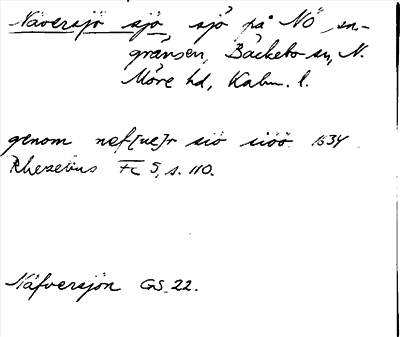 Näversjö sjö sjö på NÖ sn-
gränsen, Bäckebo sn, N.
Möre hd, Kalm. l.
genom nef[ue]r siö siöö 1634
Rhezelius Fc 5, s. 110.
Näfversjön GS 22.